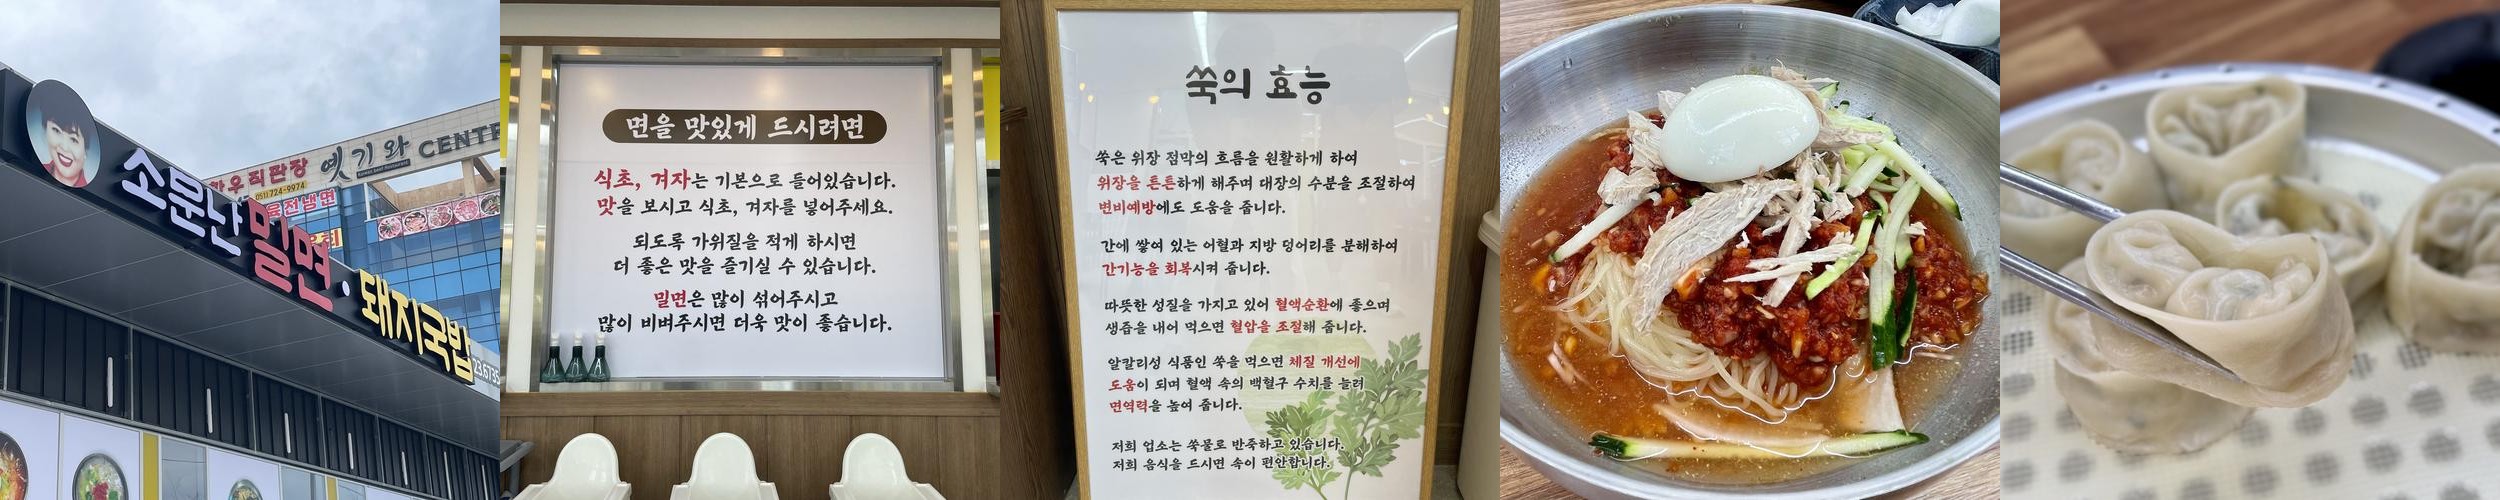 소문난 밀면·돼지국밥
옛기와 CENTE
한우직판장
051) 724-9974
육전냉면
면을 맛있게 드시려면
식초, 겨자는 기본으로 들어있습니다.
맛을 보시고 식초, 겨자를 넣어주세요.
되도록 가위질을 적게 하시면
더 좋은 맛을 즐기실 수 있습니다.
밀면은 많이 섞어주시고
많이 비벼주시면 더욱 맛이 좋습니다.
쑥의 효능
쑥은 위장 점막의 흐름을 원활하게 하여
위장을 튼튼하게 해주며 대장의 수분을 조절하여
변비예방에도 도움을 줍니다.
간에 쌓여 있는 어혈과 지방 덩어리를 분해하여
간기능을 회복시켜 줍니다.
따뜻한 성질을 가지고 있어 혈액순환에 좋으며
생즙을 내어 먹으면 혈압을 조절해 줍니다.
알칼리성 식품인 쑥을 먹으면 체질 개선에
도움이 되며 혈액 속의 백혈구 수치를 늘려
면역력을 높여 줍니다.
저희 업소는 쑥물로 반죽하고 있습니다.
저희 음식을 드시면 속이 편안합니다.